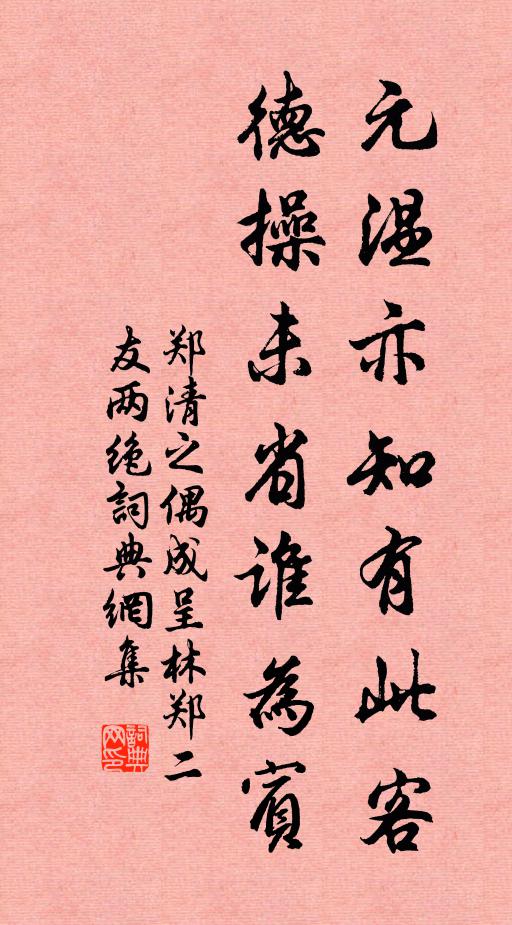 元温亦知有此客
德操未省谁為賓
郑清之偶成呈林郑二
友两绝詞典網集
詞典
网印